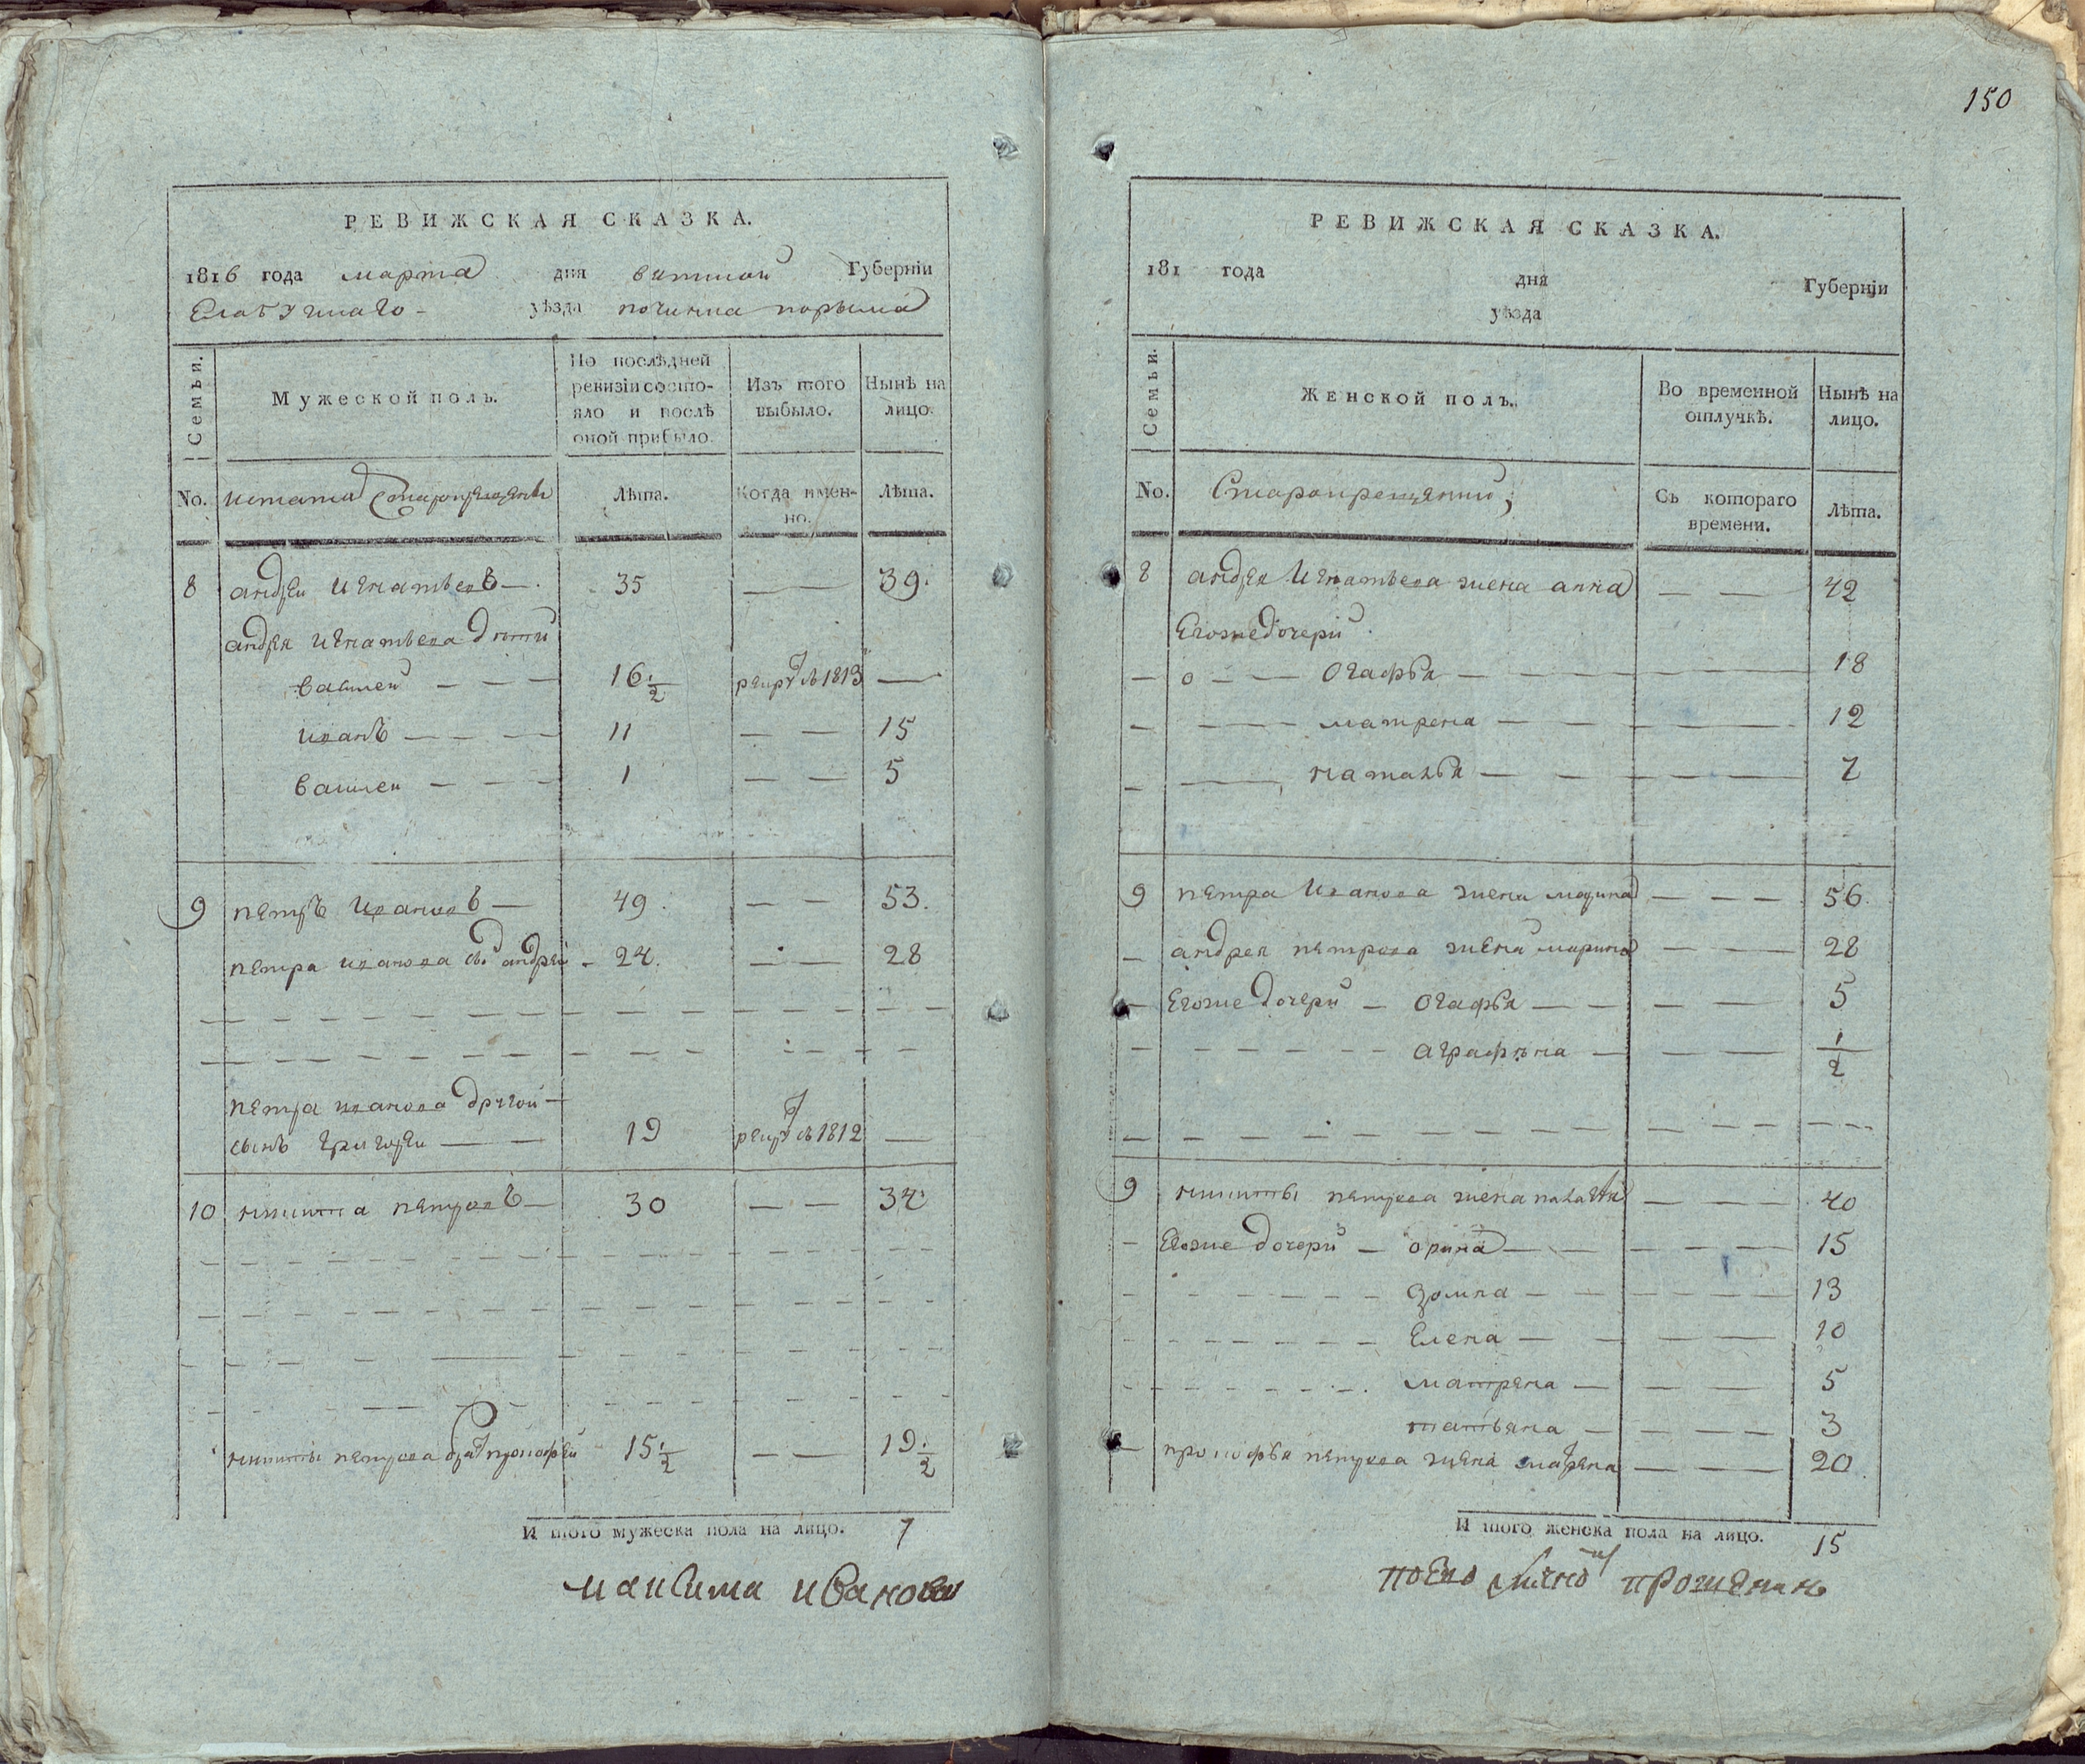 РЕВИЖСКАЯ СКАЗКА.
1816 года марта дня вятской Губерніи
Елабужнаго уѣзда починка
Семьи.
Мужеской полъ.
По послѣдней
ревизіи состо-
яло и послѣ
оной прибыло.
Изъ того
выбыло.
Нынѣ на
лицо.
No.
Лѣта.
Когда имен-
но.
Лѣта.
8 андреи игнатьевъ 35 39.
андрея игнатьева дѣти
василеи 16 1/2 1813
иванъ 11 15
василеи 1 5
9 петръ ивановъ 49. 53.
петра иванова андреи 24. 28
петра иванова другой
сынъ григореи 19 1812
10 никита петровъ 30 34
никиты петрова прокофеи 15 1/2 19 1/2
И того мужеска пола на лицо. 7
максима иванова
150
РЕВИЖСКАЯ СКАЗКА.
181 года дня Губерніи
уѣзда
Семьи.
Женской полъ.
Во временной
отлучкѣ.
Нынѣ на
лицо.
No.
Съ котораго
времени.
Лѣта.
8 андрея игнатьева жена анна 42
Егоже дочери
огафья 18
матрена 12
наталья 7
9 петра иванова жена марина 56
андрея петрова жена марина 28
Егоже дочери огафья 5
аграфена 1/2
9 никиты петрова жена палагея 40
Егоже дочери орина 15
13
Елена 10
матрена 5
татьяна 3
прокофья петрова жена матрена 20
И того женска пола на лицо. 15
поево лично прошению